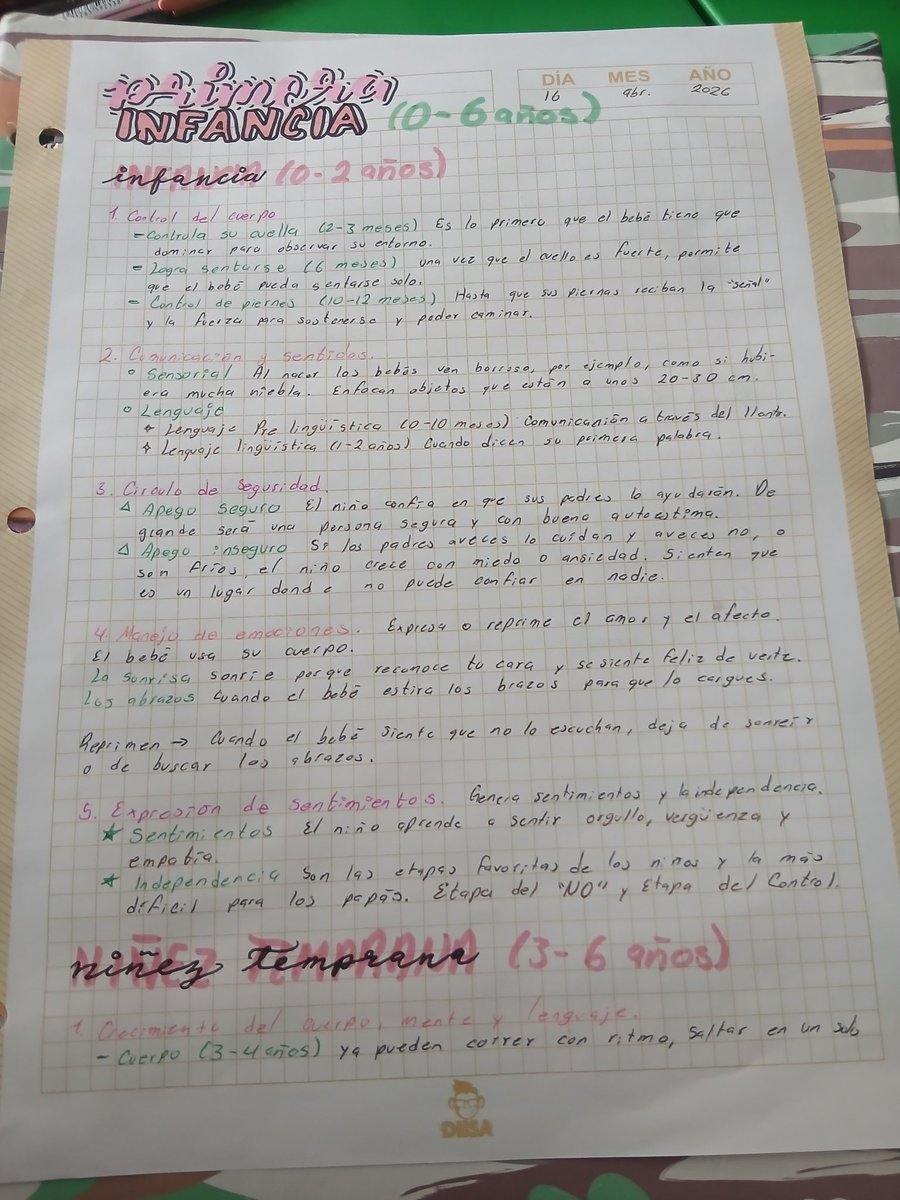 primera
INFANCIA (0-6 años)
DÍA MES AÑO
16 abr. 2026
infancia (0-2 años)
1. Control del cuerpo
- Controla su cuello (2-3 meses) Es lo primero que el bebé tiene que
dominar para observar su entorno.
- Logra sentarse (6 meses) una vez que el cuello es fuerte, permite
que el bebé pueda sentarse solo.
- Control de piernes (10-12 meses) Hasta que sus piernas reciban la "señal"
y la fuerza para sostenerse y poder caminar.
2. Comunicación y sentidos.
° Sensorial Al nacer los bebés ven borroso, por ejemplo, como si hubi-
era mucha niebla. Enfocan objetos que están a unos 20-30 cm.
° Lenguaje
+ Lenguaje Pre lingüística (0-10 meses) Comunicanión a través del llanto.
+ Lenguaje lingüística (1-2 años) Cuando dicen su primera palabra.
3. Circulo de seguridad.
△ Apego seguro El niño confía en que sus padres lo ayudarán. De
grande será una persona segura y con buena autoestima.
△ Apego inseguro Si los padres aveces lo cuidan y aveces no, o
son fríos, el niño crece con miedo o ansiedad. Sienten que
es un lugar donde no puede confiar en nadie.
4. Manejo de emociones. Expresa o reprime el amor y el afecto.
El bebé usa su cuerpo.
La sonrisa sonríe porque reconoce tu cara y se siente feliz de verte.
Los abrazos cuando el bebé estira los brazos para que lo cargues.
Reprimen → Cuando el bebé siente que no lo escuchan, deja de sonreír
o de buscar los abrazos.
5. Expresion de sentimientos. Gencia sentimientos y la independencia.
★ Sentimientos El niño aprende a sentir orgullo, vergüenza y
empatía.
★ Independencia Son las etapas favoritas de los niños y la más
díficil para los papás. Etapa del "NO" y Etapa del Control.
niñez Temprana (3-6 años)
1. Crecimiento del cuerpo, mente y lenguaje.
- Cuerpo (3-4 años) ya pueden correr con ritmo, saltar en un solo
DIISA